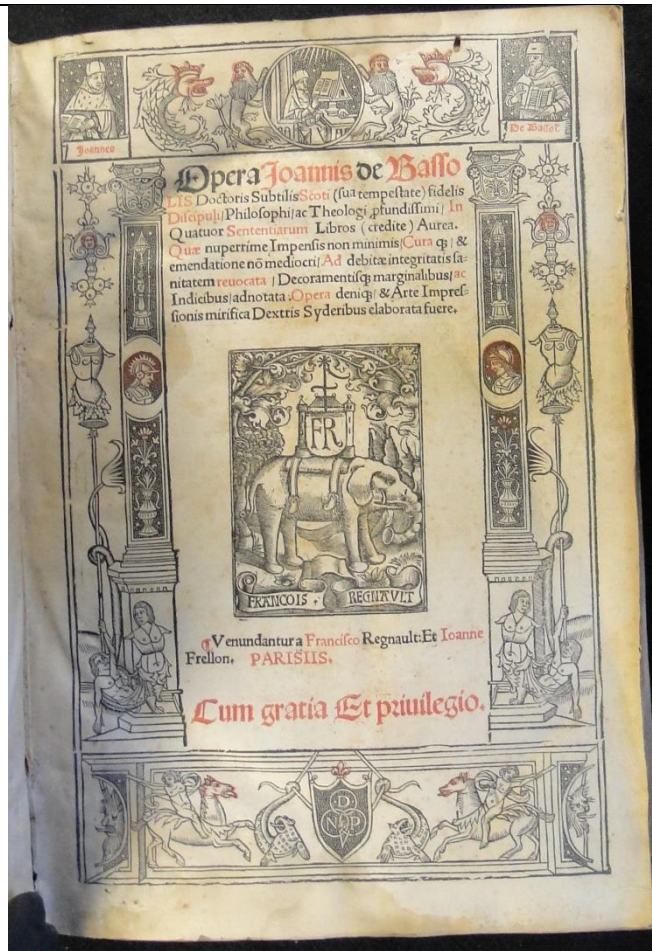 Joannes
De Bassol'
Opera Joannis de Basso
LIS Doctoris Subtilis Scoti (sua tempestate) fidelis
Discipuli/Philosophi/ac Theologi ꝓfundissimi/ In
Quatuor Sententiarum Libros (credite) Aurea.
Quæ nuperrime Impensis non minimis/Cura qꝫ/ &
emendatione nō mediocri/Ad debitæ integritatis sa-
nitatem reuocata / Decoramentisqꝫ marginalibus/ac
Indicibus/adnotata. Opera deniqꝫ/ & Arte Impres-
sionis mirifica Dextris Syderibus elaborata fuere.
FR
FRANCOIS REGNAVLT
¶Venundantur a Francisco Regnault: Et Ioanne
Frellon. PARISIIS.
Cum gratia Et priuilegio.